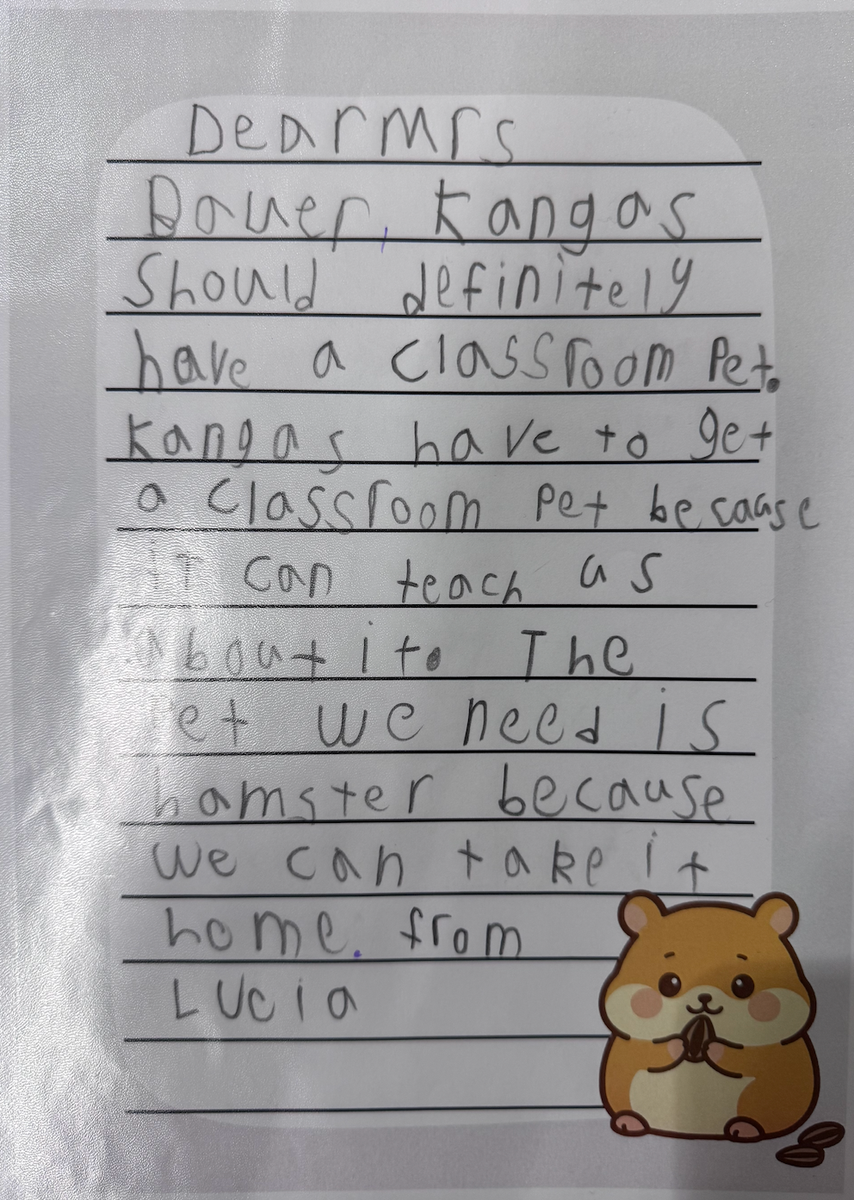 Dear Mrs
Bauer, Kangas
Should definitely
have a classroom Pet.
Kangas have to get
a classroom Pet because
it can teach us
about it. The
Pet we need is
hamster because
we can take it
home. from
LUcia